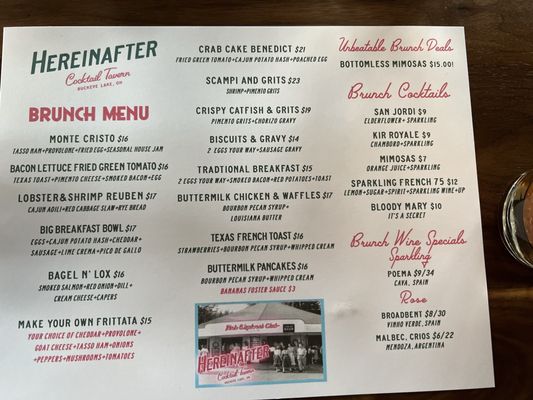 HEREINAFTER
Cocktail Tavern
BUCKEYE LAKE, OH
BRUNCH MENU
MONTE CRISTO $16
TASSO HAM+PROVOLONE+FRIED EGG+SEASONAL HOUSE JAM
BACON LETTUCE FRIED GREEN TOMATO $16
TEXAS TOAST+PIMENTO CHEESE+SMOKED BACON+EGG
LOBSTER&SHRIMP REUBEN $17
CAJUN AOLI+RED CABBAGE SLAW+RYE BREAD
BIG BREAKFAST BOWL $17
EGGS+CAJUN POTATO HASH+CHEDDAR+
SAUSAGE+LIME CREMA+PICO DE GALLO
BAGEL N' LOX $16
SMOKED SALMON+RED ONION+DILL+
CREAM CHEESE+CAPERS
MAKE YOUR OWN FRITTATA $15
YOUR CHOICE OF CHEDDAR+PROVOLONE+
GOAT CHEESE+TASSO HAM+ONIONS
+PEPPERS+MUSHROOMS+TOMATOES
CRAB CAKE BENEDICT $21
FRIED GREEN TOMATO+CAJUN POTATO HASH+POACHED EGG
SCAMPI AND GRITS $23
SHRIMP+PIMENTO GRITS
CRISPY CATFISH & GRITS $19
PIMENTO GRITS+CHORIZO GRAVY
BISCUITS & GRAVY $14
2 EGGS YOUR WAY+SAUSAGE GRAVY
TRADTIONAL BREAKFAST $15
2 EGGS YOUR WAY+SMOKED BACON+RED POTATOES+TOAST
BUTTERMILK CHICKEN & WAFFLES $17
BOURBON PECAN SYRUP+
LOUISIANA BUTTER
TEXAS FRENCH TOAST $16
STRAWBERRIES+BOURBON PECAN SYRUP+WHIPPED CREAM
BUTTERMILK PANCAKES $16
BOURBON PECAN SYRUP+WHIPPED CREAM
BANANAS FOSTER SAUCE $3
HEREINAFTER
Cocktail Tavern
BUCKEYE LAKE, OH
Unbeatable Brunch Deals
BOTTOMLESS MIMOSAS $15.00!
Brunch Cocktails
SAN JORDI $9
ELDERFLOWER+SPARKLING
KIR ROYALE $9
CHAMBORD+SPARKLING
MIMOSAS $7
ORANGE JUICE+SPARKLING
SPARKLING FRENCH 75 $12
LEMON+SUGAR+SPIRIT+SPARKLING WINE+UP
BLOODY MARY $10
IT'S A SECRET
Brunch Wine Specials
Sparkling
POEMA $9/34
CAVA, SPAIN
Rose
BROADBENT $8/30
VINHO VERDE, SPAIN
MALBEC, CRIOS $6/22
MENDOZA, ARGENTINA